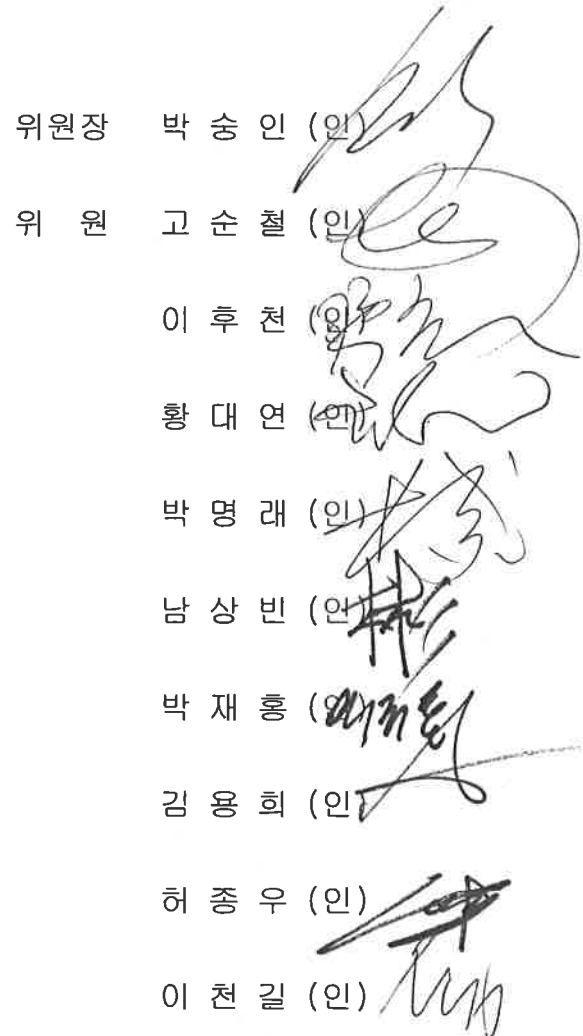 위원장 박 숭 인 (인)
위 원 고 순 철 (인)
이 후 천 (인)
황 대 연 (인)
박 명 래 (인)
남 상 빈 (인)
박 재 홍 (인)
김 용 희 (인)
허 종 우 (인)
이 천 길 (인)